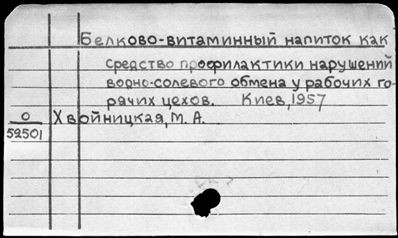 Белково-витаминный напиток как
средство профилактики нарушений
водно-солевого обмена у рабочих го-
рячих цехов. Киев, 1957
О
52501
Хвойницкая, М. А.